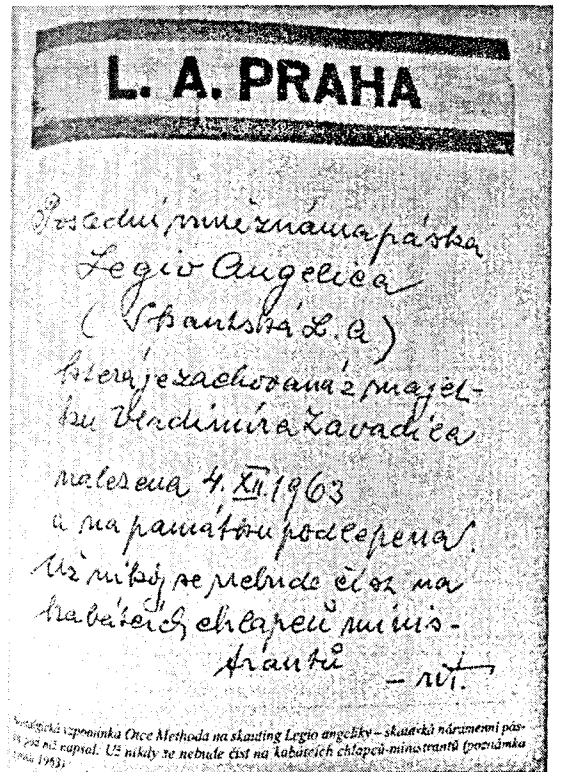 L. A. PRAHA
Poslední mně známá páska
Legio Angelica
(Skautská L. A)
která je zachovaná z majet-
ku Vladimíra Zavadila
nalezena 4. XII. 1963
a na památku podlepena.
Už nikdy se nebude číst na
kabátcích chlapců minis-
trantů
Nostalgická vzpomínka Otce Methoda na skauting Legio angeliky – skautská náramenní pás-
pod níž napsal: Už nikdy se nebude číst na kabátcích chlapců-ministrantů (poznámka
roku 1963)